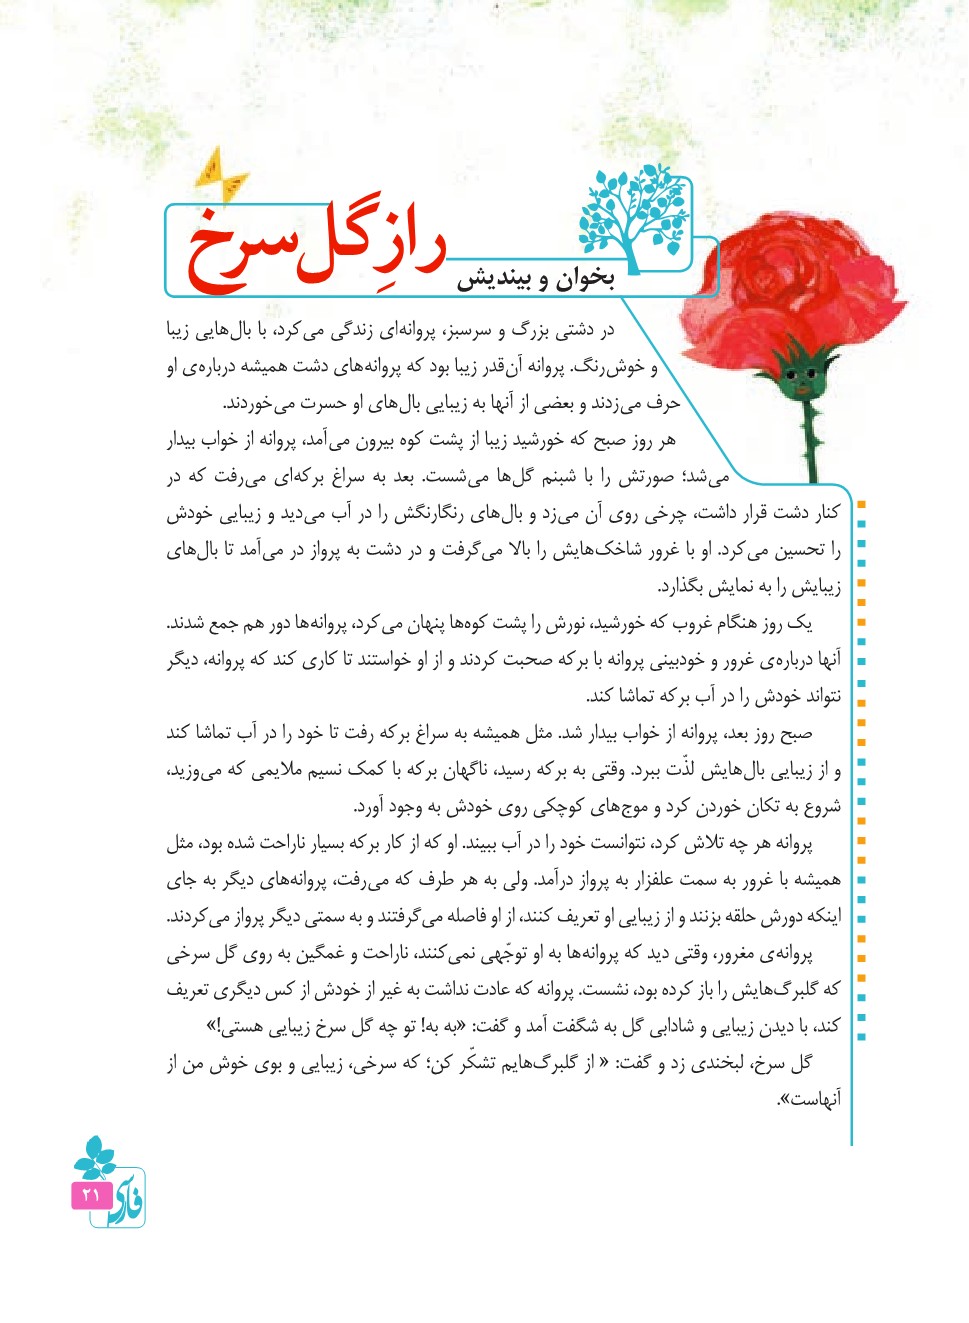 رازِ گل سرخ
بخوان و بیندیش
در دشتی بزرگ و سرسبز، پروانه‌ای زندگی می‌کرد، با بال‌هایی زیبا
و خوش‌رنگ. پروانه آن‌قدر زیبا بود که پروانه‌های دشت همیشه درباره‌ی او
حرف می‌زدند و بعضی از آنها به زیبایی بال‌های او حسرت می‌خوردند.
هر روز صبح که خورشید زیبا از پشت کوه بیرون می‌آمد، پروانه از خواب بیدار
می‌شد؛ صورتش را با شبنم گل‌ها می‌شست. بعد به سراغ برکه‌ای می‌رفت که در
کنار دشت قرار داشت، چرخی روی آن می‌زد و بال‌های رنگارنگش را در آب می‌دید و زیبایی خودش
را تحسین می‌کرد. او با غرور شاخک‌هایش را بالا می‌گرفت و در دشت به پرواز در می‌آمد تا بال‌های
زیبایش را به نمایش بگذارد.
یک روز هنگام غروب که خورشید، نورش را پشت کوه‌ها پنهان می‌کرد، پروانه‌ها دور هم جمع شدند.
آنها درباره‌ی غرور و خودبینی پروانه با برکه صحبت کردند و از او خواستند تا کاری کند که پروانه، دیگر
نتواند خودش را در آب برکه تماشا کند.
صبح روز بعد، پروانه از خواب بیدار شد. مثل همیشه به سراغ برکه رفت تا خود را در آب تماشا کند
و از زیبایی بال‌هایش لذّت ببرد. وقتی به برکه رسید، ناگهان برکه با کمک نسیم ملایمی که می‌وزید،
شروع به تکان خوردن کرد و موج‌های کوچکی روی خودش به وجود آورد.
پروانه هر چه تلاش کرد، نتوانست خود را در آب ببیند. او که از کار برکه بسیار ناراحت شده بود، مثل
همیشه با غرور به سمت علفزار به پرواز درآمد. ولی به هر طرف که می‌رفت، پروانه‌های دیگر به جای
اینکه دورش حلقه بزنند و از زیبایی او تعریف کنند، از او فاصله می‌گرفتند و به سمتی دیگر پرواز می‌کردند.
پروانه‌ی مغرور، وقتی دید که پروانه‌ها به او توجّهی نمی‌کنند، ناراحت و غمگین به روی گل سرخی
که گلبرگ‌هایش را باز کرده بود، نشست. پروانه که عادت نداشت به غیر از خودش از کس دیگری تعریف
کند، با دیدن زیبایی و شادابی گل به شگفت آمد و گفت: «به به! تو چه گل سرخ زیبایی هستی!»
گل سرخ، لبخندی زد و گفت: « از گلبرگ‌هایم تشکّر کن؛ که سرخی، زیبایی و بوی خوش من از
آنهاست».
فارسی
۲۱